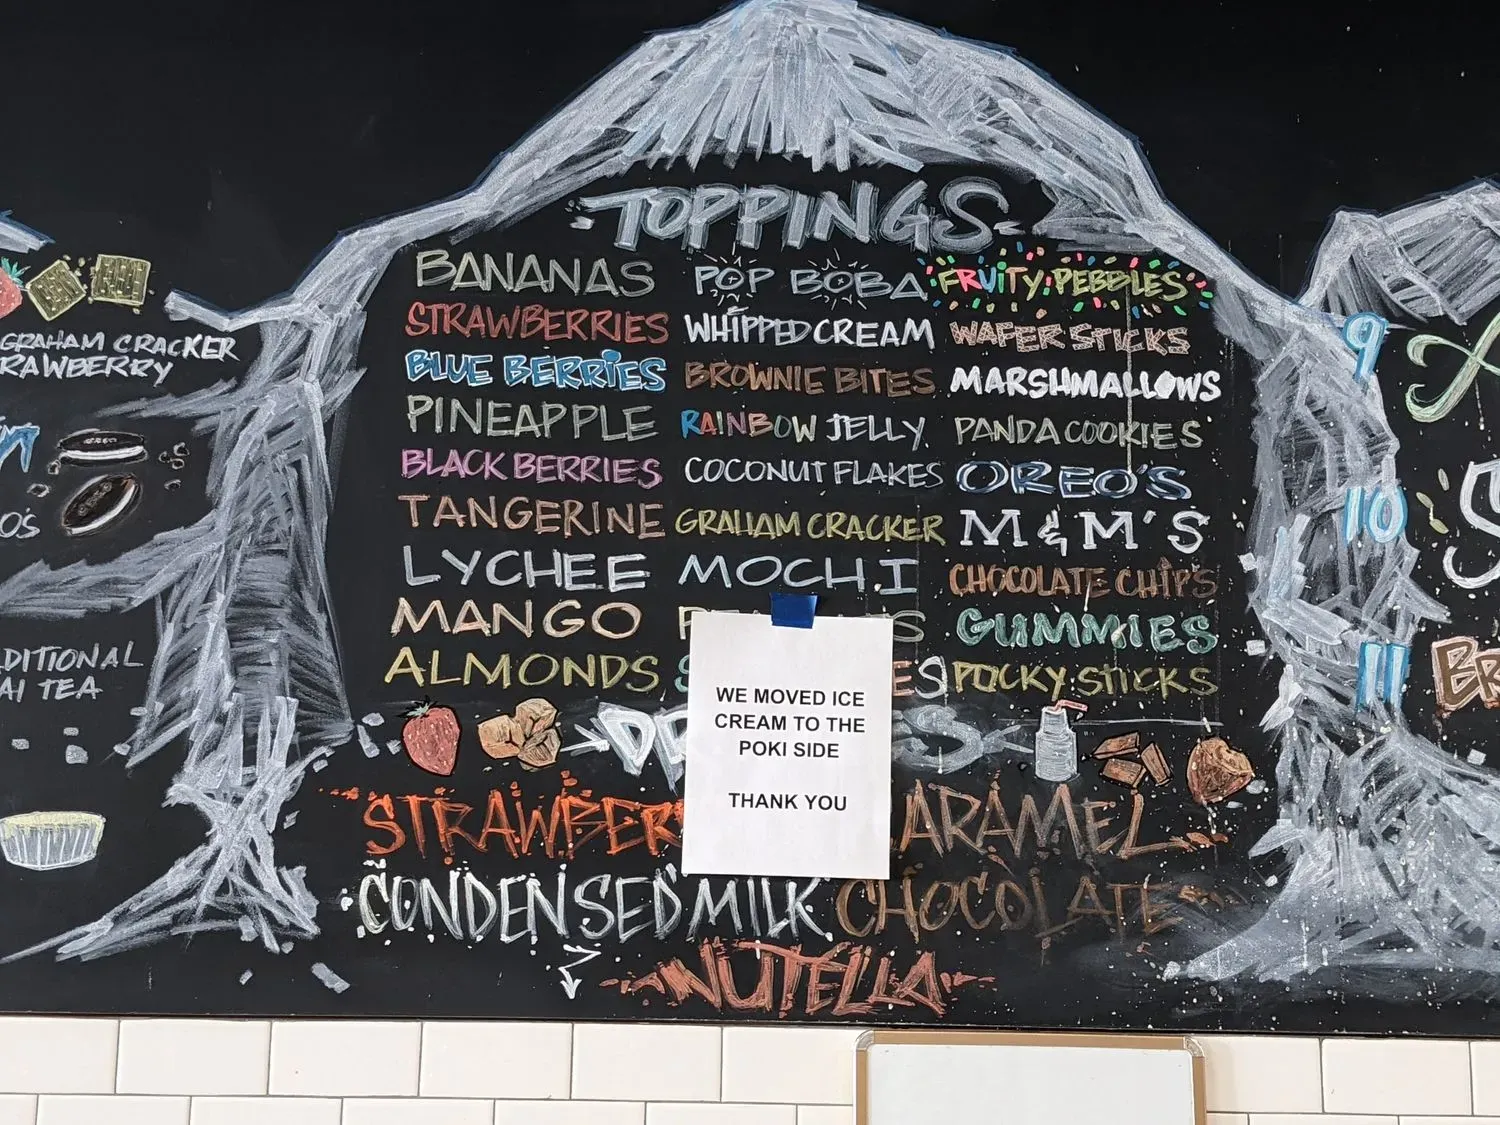 TOPPINGS
BANANAS
STRAWBERRIES
BLUE BERRIES
PINEAPPLE
BLACK BERRIES
TANGERINE
LYCHEE
MANGO
ALMONDS
POP BOBA
WHIPPED CREAM
BROWNIE BITES
RAINBOW JELLY
COCONUT FLAKES
GRAHAM CRACKER
MOCHI
FRUITY PEBBLES
WAFER STICKS
MARSHMALLOWS
PANDA COOKIES
OREO'S
M & M'S
CHOCOLATE CHIPS
GUMMIES
POCKY STICKS
WE MOVED ICE
CREAM TO THE
POKI SIDE
THANK YOU
STRAWBER ARAMEL
CONDENSED MILK CHOCOLATE
NUTELLA
GRAHAM CRACKER
RAWBERRY
O'S
DITIONAL
AI TEA
9
10
11